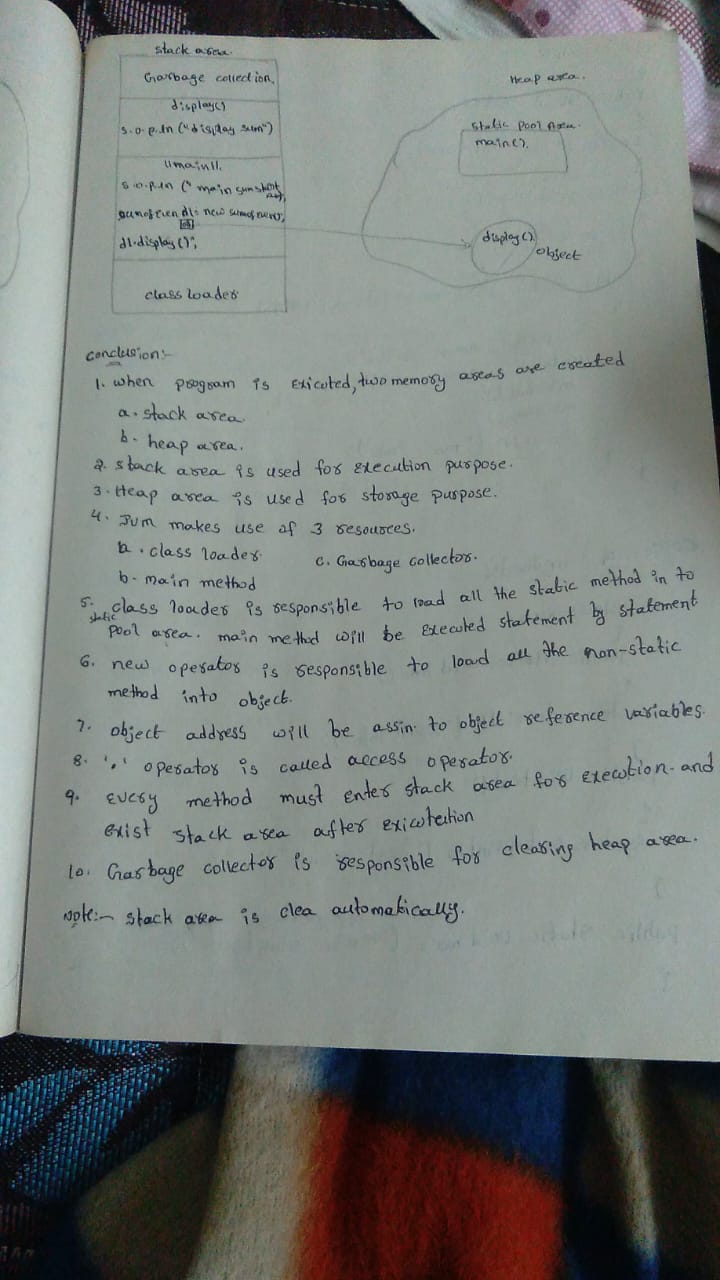 stack area.
Garbage collection.
display()
s.o.p.ln ("display sum")
main
s.o.p.ln (" main
d1= new
d1.display();
class loader
Heap area.
static pool Area
main().
display()
object
conclusion:-
1. when program is exicuted, two memory areas are created
a. stack area.
b. heap area.
2. stack area is used for execution purpose.
3. Heap area is used for storage purpose.
4. Jvm makes use of 3 resources.
a. class loader c. Garbage collector.
b. main method
5. class loader is responsible to load all the static method in to
static pool area. main method will be executed statement by statement
6. new operator is responsible to load all the non-static
method into object.
7. object address will be assin to object reference variables.
8. '.' operator is called access operator.
9. Every method must enter stack area for execution. and
exist stack area after
10. Garbage collector is responsible for clearing heap area.
Note:- stack area is clea automatically.